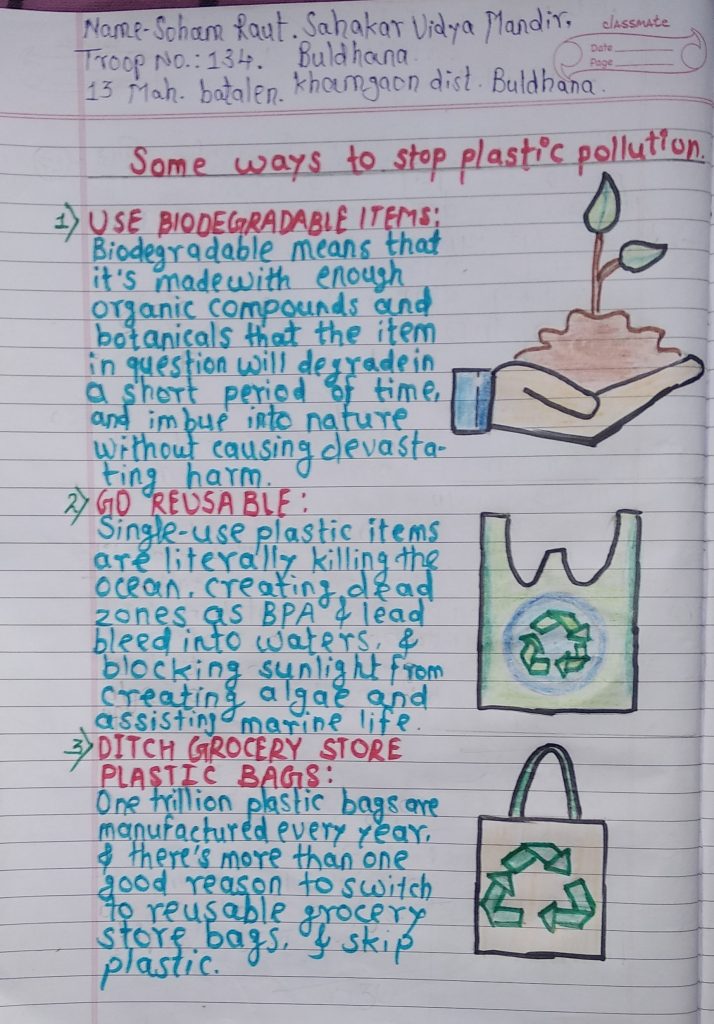 Name-Soham Raut. Sahakar Vidya Mandir,
Troop No.: 134. Buldhana.
13 Mah. batalen. khamgaon dist. Buldhana.
classmate
Date
Page
Some ways to stop plastic pollution.
1) USE BIODEGRADABLE ITEMS:
Biodegradable means that
it's made with enough
organic compounds and
botanicals that the item
in question will degrade in
a short period of time,
and imbue into nature
without causing devasta-
ting harm.
2) GO REUSABLE:
Single-use plastic items
are literally killing the
ocean, creating dead
zones as BPA & lead
bleed into waters, &
blocking sunlight from
creating algae and
assisting marine life.
3) DITCH GROCERY STORE
PLASTIC BAGS:
One trillion plastic bags are
manufactured every year,
& there's more than one
good reason to switch
to reusable grocery
store bags, & skip
plastic.